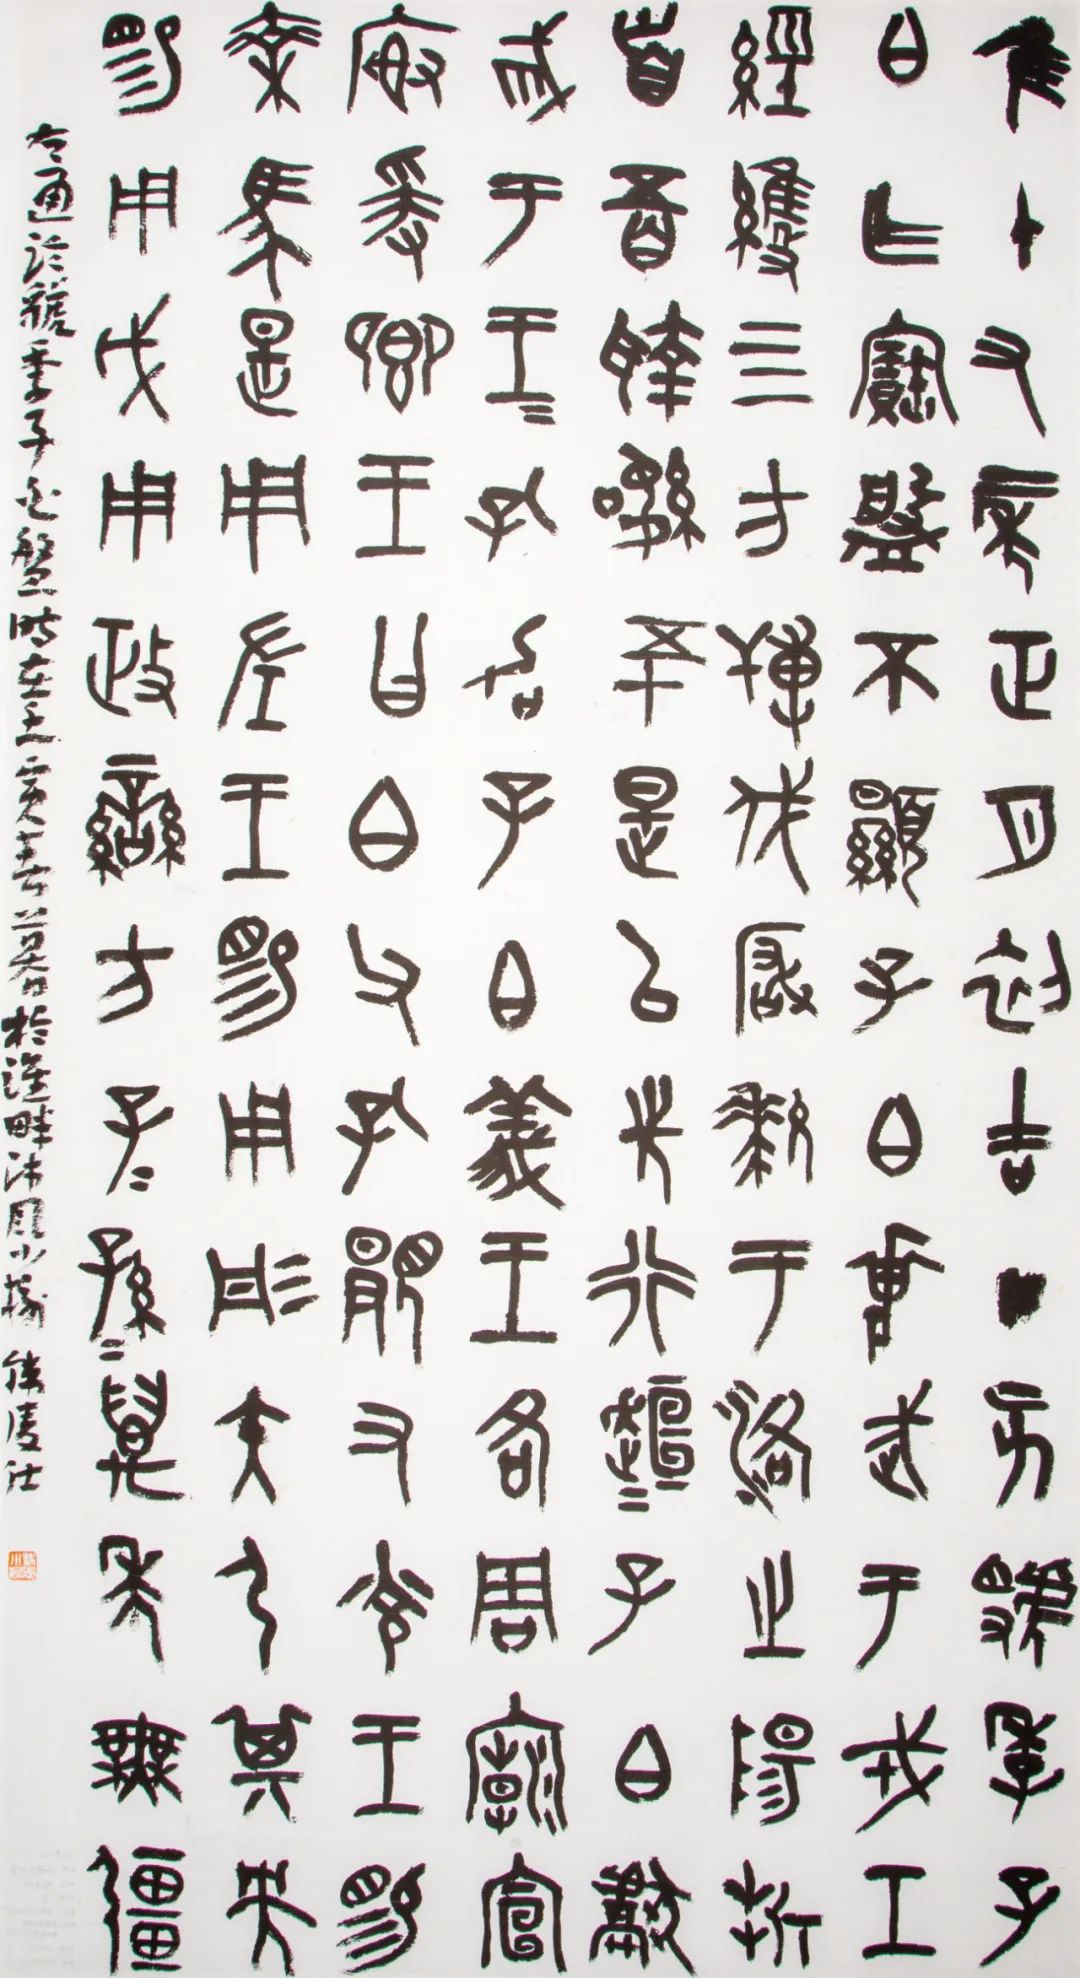 隹十又二年正月初吉丁亥虢季子
白乍寶盤不顯子白壯武于戎工
經維四方搏伐玁狁于洛之陽折
首五百執訊五十是以先行趄＝子白獻
馘于王＝孔加子白義王各周廟宣
廚爰卿王曰白父孔顯又光王賜
乘馬是用左王賜用彤矢弓其央
賜用戉用政蠻方子＝孫＝萬年無疆
右通臨虢季子白盤時在壬寅春暮於漢畔沐風小榭